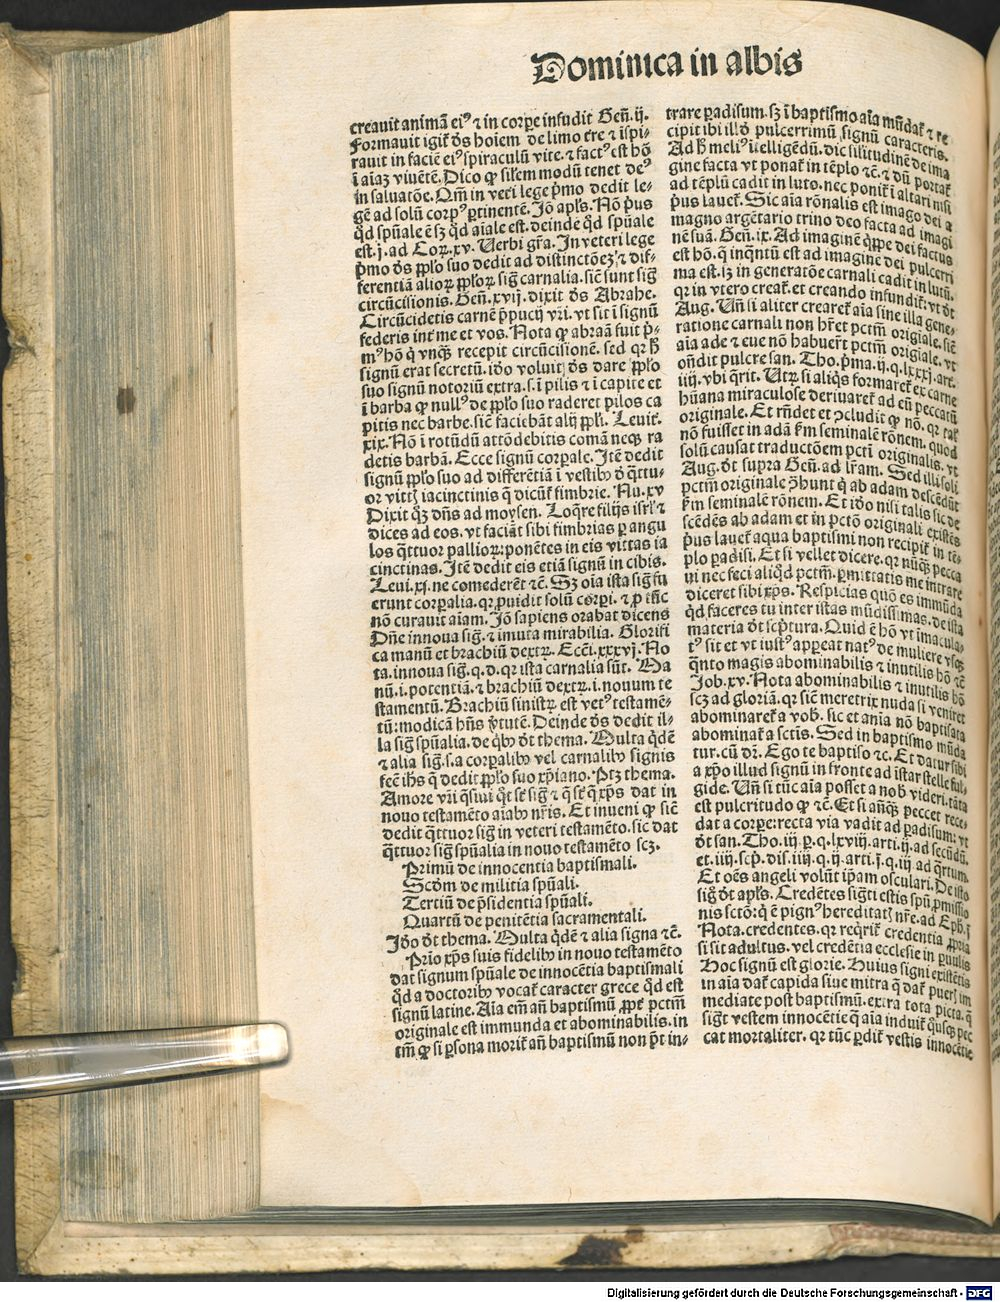 Dominica in albis
creauit animã ei⁹ ⁊ in corpe infudit Geñ. ij.
Formauit igit̃ dñs hoiem de limo tre ⁊ ispi-
rauit in faciẽ ei⁹ spiraculũ vite. ⁊ fact⁹ est hõ
ĩ aiaʒ viuẽtẽ. Dico ꝙ silem modũ tenet de⁹
in saluatõe. Qm̃ in veti lege pꝛmo dedit le-
gẽ ad solũ corp⁹ ꝑtinentẽ. Jõ apl̃s. Nõ pꝛus
qd̃ spũale ẽ sʒ qd̃ aiale est. deinde qd̃ spũale
est. j. ad Coꝝ. xv. Uerbi gr̃a. In veteri lege
pꝛmo dñs pplo suo dedit ad distinctõeʒ ⁊ dif-
ferentiã alioꝝ pploꝝ sig̃ carnalia. sic̃ sunt sig̃
circũcisionis. Geñ. xvij. dixit dñs Abrahe.
Circũcidetis carnẽ ppucij vr̃i. vt sit ĩ signũ
federis int̃ me et vos. Nota ꝙ abraã fuit pꝛ-
m⁹ hõ q̃ vnqʒ recepit circũcisionẽ. sed qꝛ h̃
signũ erat secretũ. ido voluit dñs dare pplo
suo signũ notoriũ extra. s. ĩ pilis ⁊ ĩ capite et
ĩ barba ꝙ null⁹ de pplo suo raderet pilos ca
pitis nec barbe. sic̃ faciebãt alij ppli. Leuit̃.
xix. Nõ ĩ rotũdũ attõdebitis comã neqʒ ra
detis barbã. Ecce signũ corpale. Itẽ dedit
signũ pplo suo ad differẽtiã ĩ vestibʒ d̃ q̃ttu-
or vittꝭ iacinctinis q̃ dicũt̃ fimbrie. Nu. xv
Dixit qʒ dñs ad moysen. Loq̃re filijs isrl̃ ⁊
dices ad eos. vt faciãt sibi fimbrias ꝑ angu
los q̃ttuor pallioꝝ: ponẽtes in eis vittas ia
cinctinas. Itẽ dedit eis etiã signũ in cibis.
Leui. xi. ne comederẽt ⁊c̃. Sʒ oia ista sig̃ fu
erunt corpalia. qꝛ puidit solũ corpi. ⁊ ꝓ tũc
nõ curauit aiam. Jõ sapiens orabat dicens
Dñe innoua sig̃. ⁊ imuta mirabilia. Glorifi
ca manũ et brachiũ dextꝝ. Ecci. xxxvj. No
ta. innoua sig̃. q. d. qꝛ ista carnalia sũt. Ma
nũ. i. potentiã. ⁊ brachiũ dextꝝ. i. nouum te
stamentũ. Brachiũ sinistꝝ est vet⁹ testamẽ-
tũ: modicã hñs ꝟtutẽ. Deinde dñs dedit il-
la sig̃ spũalia. de qbʒ dt̃ thema. Multa qdẽ
⁊ alia sig̃. s. a corpalibʒ vel carnalibʒ signis
fec̃ ihs q̃ dedit pplo suo xp̃iano. Ptʒ thema.
Amore vr̃i q̃siui q̃t st̃ sig̃ ⁊ q̃ st̃ q̃ xp̃s dat in
nouo testamẽto aiabʒ nr̃is. Et inueni ꝙ sic̃
dedit q̃ttuor sig̃ in veteri testamẽto. sic dat
q̃ttuor sig̃ spũalia in nouo testamẽto scʒ.
Primũ de innocentia baptismali.
Scdm de militia spũali.
Tertiũ de psidentia spũali.
Quartũ de penitẽtia sacramentali.
Ido dt̃ thema. Multa qdẽ ⁊ alia signa ⁊c̃.
Prio xp̃s suis fidelibʒ in nouo testamẽto
dat signum spũale de innocẽtia baptismali
qd̃ a doctoribʒ vocat̃ caracter grece qd̃ est
signũ latine. Aia em̃ añ baptismũ ppt̃ pctm̃
originale est immunda et abominabilis. in
tm̃ ꝙ si psona morit̃ añ baptismũ non pt̃ in-
trare padisum. sʒ ĩ baptismo aia mũdat̃ ⁊ re
cipit ibi illd̃ pulcerrimũ signũ caracteris.
Ad h̃ meli⁹ ĩtelligẽdũ. dic similitudinẽ de ima
gine facta vt ponat̃ in tẽplo ⁊c̃. ⁊ dũ portat̃
ad tẽplũ cadit in luto. nec ponit̃ ĩ altari nisi
pꝛus lauet̃. Sic aia rõnalis est imago dei a
magno argẽtario trino deo facta ad imagi
nẽ suã. Geñ. ix. Ad imaginẽ qppe dei factus
est hõ. q̃ inq̃ntũ est ad imaginẽ dei pulcerri
ma est. sʒ in generatõe carnali cadit in lutũ.
qꝛ in vtero creat̃. et creando infundit̃. vt dt̃
Aug. Uñ si aliter crearet̃ aia sine illa gene-
ratione carnali non hr̃et pctm̃ origiale. sic̃
aia ade ⁊ eue nõ habuert̃ pctm̃ origiale. vt
oñdit pulcre san. Tho. pꝛma. ij. q. lxxxj. art.
iiij. vbi q̃rit. Utꝝ si aliqs formaret̃ ex carne
hũana miraculose deriuaret̃ ad eũ peccatũ
originale. Et rñdet et ꝯcludit ꝙ nõ. qꝛ tal̃
nõ fuisset in adã s̃m seminalẽ rõnem. quod
solũ causat traductõem pcti originalis. vt
Aug. dt̃ supra Geñ. ad lr̃am. Sed illi soli
pctm̃ originale ꝯhunt q̃ ab adam descẽdũt
s̃m seminalẽ rõnem. Et ido nisi talis sic de
scẽdẽs ab adam et in pctõ originali existẽs
pꝛus lauet̃ aqua baptismi non recipit̃ in tẽ-
plo padisi. Et si vellet dicere. qꝛ nũqʒ pecca
ui nec feci aliqd̃ pctm̃. ꝑmittatis me intrare
diceret sibi xp̃s. Respicias quõ es immũda
qd̃ faceres tu inter istas mũdissimas. de ista
materia dt̃ scptura. Quid ẽ hõ vt imacula-
t⁹ sit et vt iust⁹ appeat nat⁹ de muliere vsqʒ
q̃nto magis abominabilis ⁊ inutilis hõ ⁊c̃
Job. xv. Nota abominabilis ⁊ inutilis hõ
scʒ ad gloriã. qꝛ sic̃ meretrix nuda si veniret
abominaret̃ a vob̃. sic et anĩa nõ baptisata
abominat̃ a sctĩs. Sed in baptismo mũda
tur. cũ dr̃. Ego te baptiso ⁊c. Et datur sibi
a xp̃o illud signũ in fronte ad istar stelle ful-
gide. Uñ si tũc aia posset a nob̃ videri. tãta
est pulcritudo ꝙ ⁊c̃. Et si añqʒ peccet rece-
dat a corpe: recta via vadit ad padisum: vt
dt̃ san. Tho. iij. p. q. lxviij. arti. ij. ad secũdũ.
et. iiij. scp̃. dis. iiij. q. ij. arti. j. q. iij. ad q̃rtum.
Et oẽs angeli volũt ip̃am osculari. De isto
sig̃ dt̃ apl̃s. Credẽtes sig̃ti estis spũ ꝓmissio
nis sctõ: q̃ ẽ pign⁹ hereditatꝭ nr̃e. ad Eph̃. j
Nota. credentes. qꝛ req̃rit̃ credentia ppria
si sit adultus. vel credẽtia ecclesie in puulis
Hoc signũ est glorie. Huius signi existẽtis
in aia dat̃ capida siue mitra q̃ dat̃ puerꝭ im
mediate post baptismũ. extra tota picta. q̃
sig̃t vestem innocẽtie q̃ aia induit̃ q̃usqʒ pec
cat mortaliter. qꝛ tũc pdit̃ vestis innocẽtie
Digitalisierung gefördert durch die Deutsche Forschungsgemeinschaft - DFG